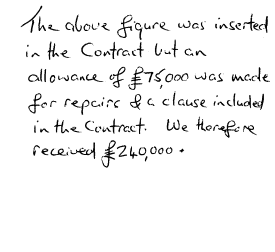 The above figure was inserted
in the Contract but an
allowance of £75,000 was made
for repairs & a clause included
in the Contract. We therefore
received £240,000.